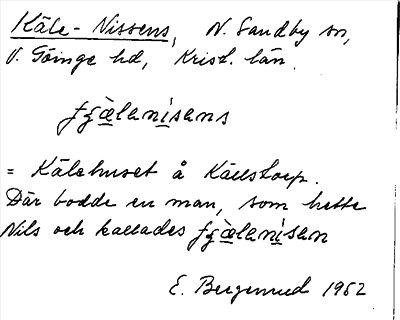 Käle-Nissens, N. Sandby sn,
V. Göinge hd, Krist. län.
fɕä̀lanìsens
= Kälehuset å Källstorp.
Där bodde en man, som hette
Nils och kallades fɕä̀lanìsen
E. Bergenrud 1962